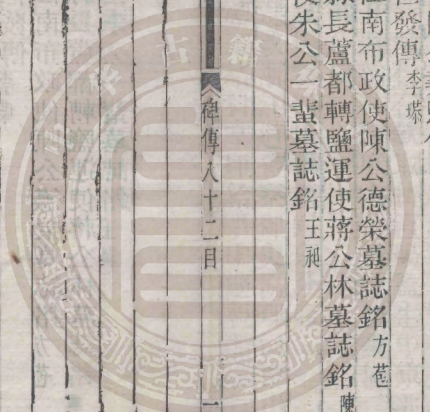 發傳李塨
江南布政使陳公德榮墓誌銘方苞
縣長蘆都轉鹽運使蔣公林墓誌銘陳
使朱公一蜚墓誌銘王昶
碑傳八十二目
一